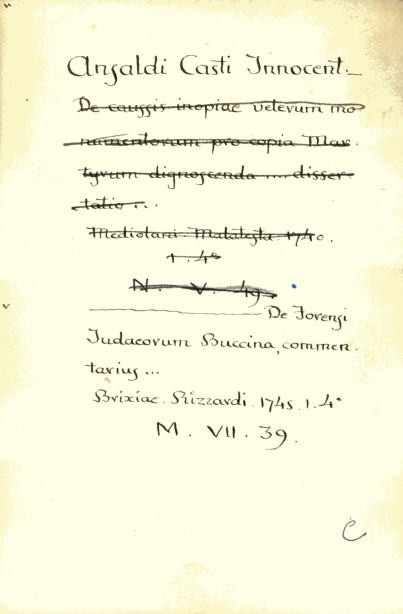 Ansaldi Casti Innocent.
De caussis inopiae veterum mo
numentorum pro copia Mar.
tyrum dignoscenda .... disser-
tatio ...
Mediolani. Malatesta. 1740.
1. 4°
N. V. 49.
De Forensi
Judaeorum Buccina, commen.
tarius ...
Brixiae. Rizzardi. 1745. 1. 4°
M. VII. 39.
C